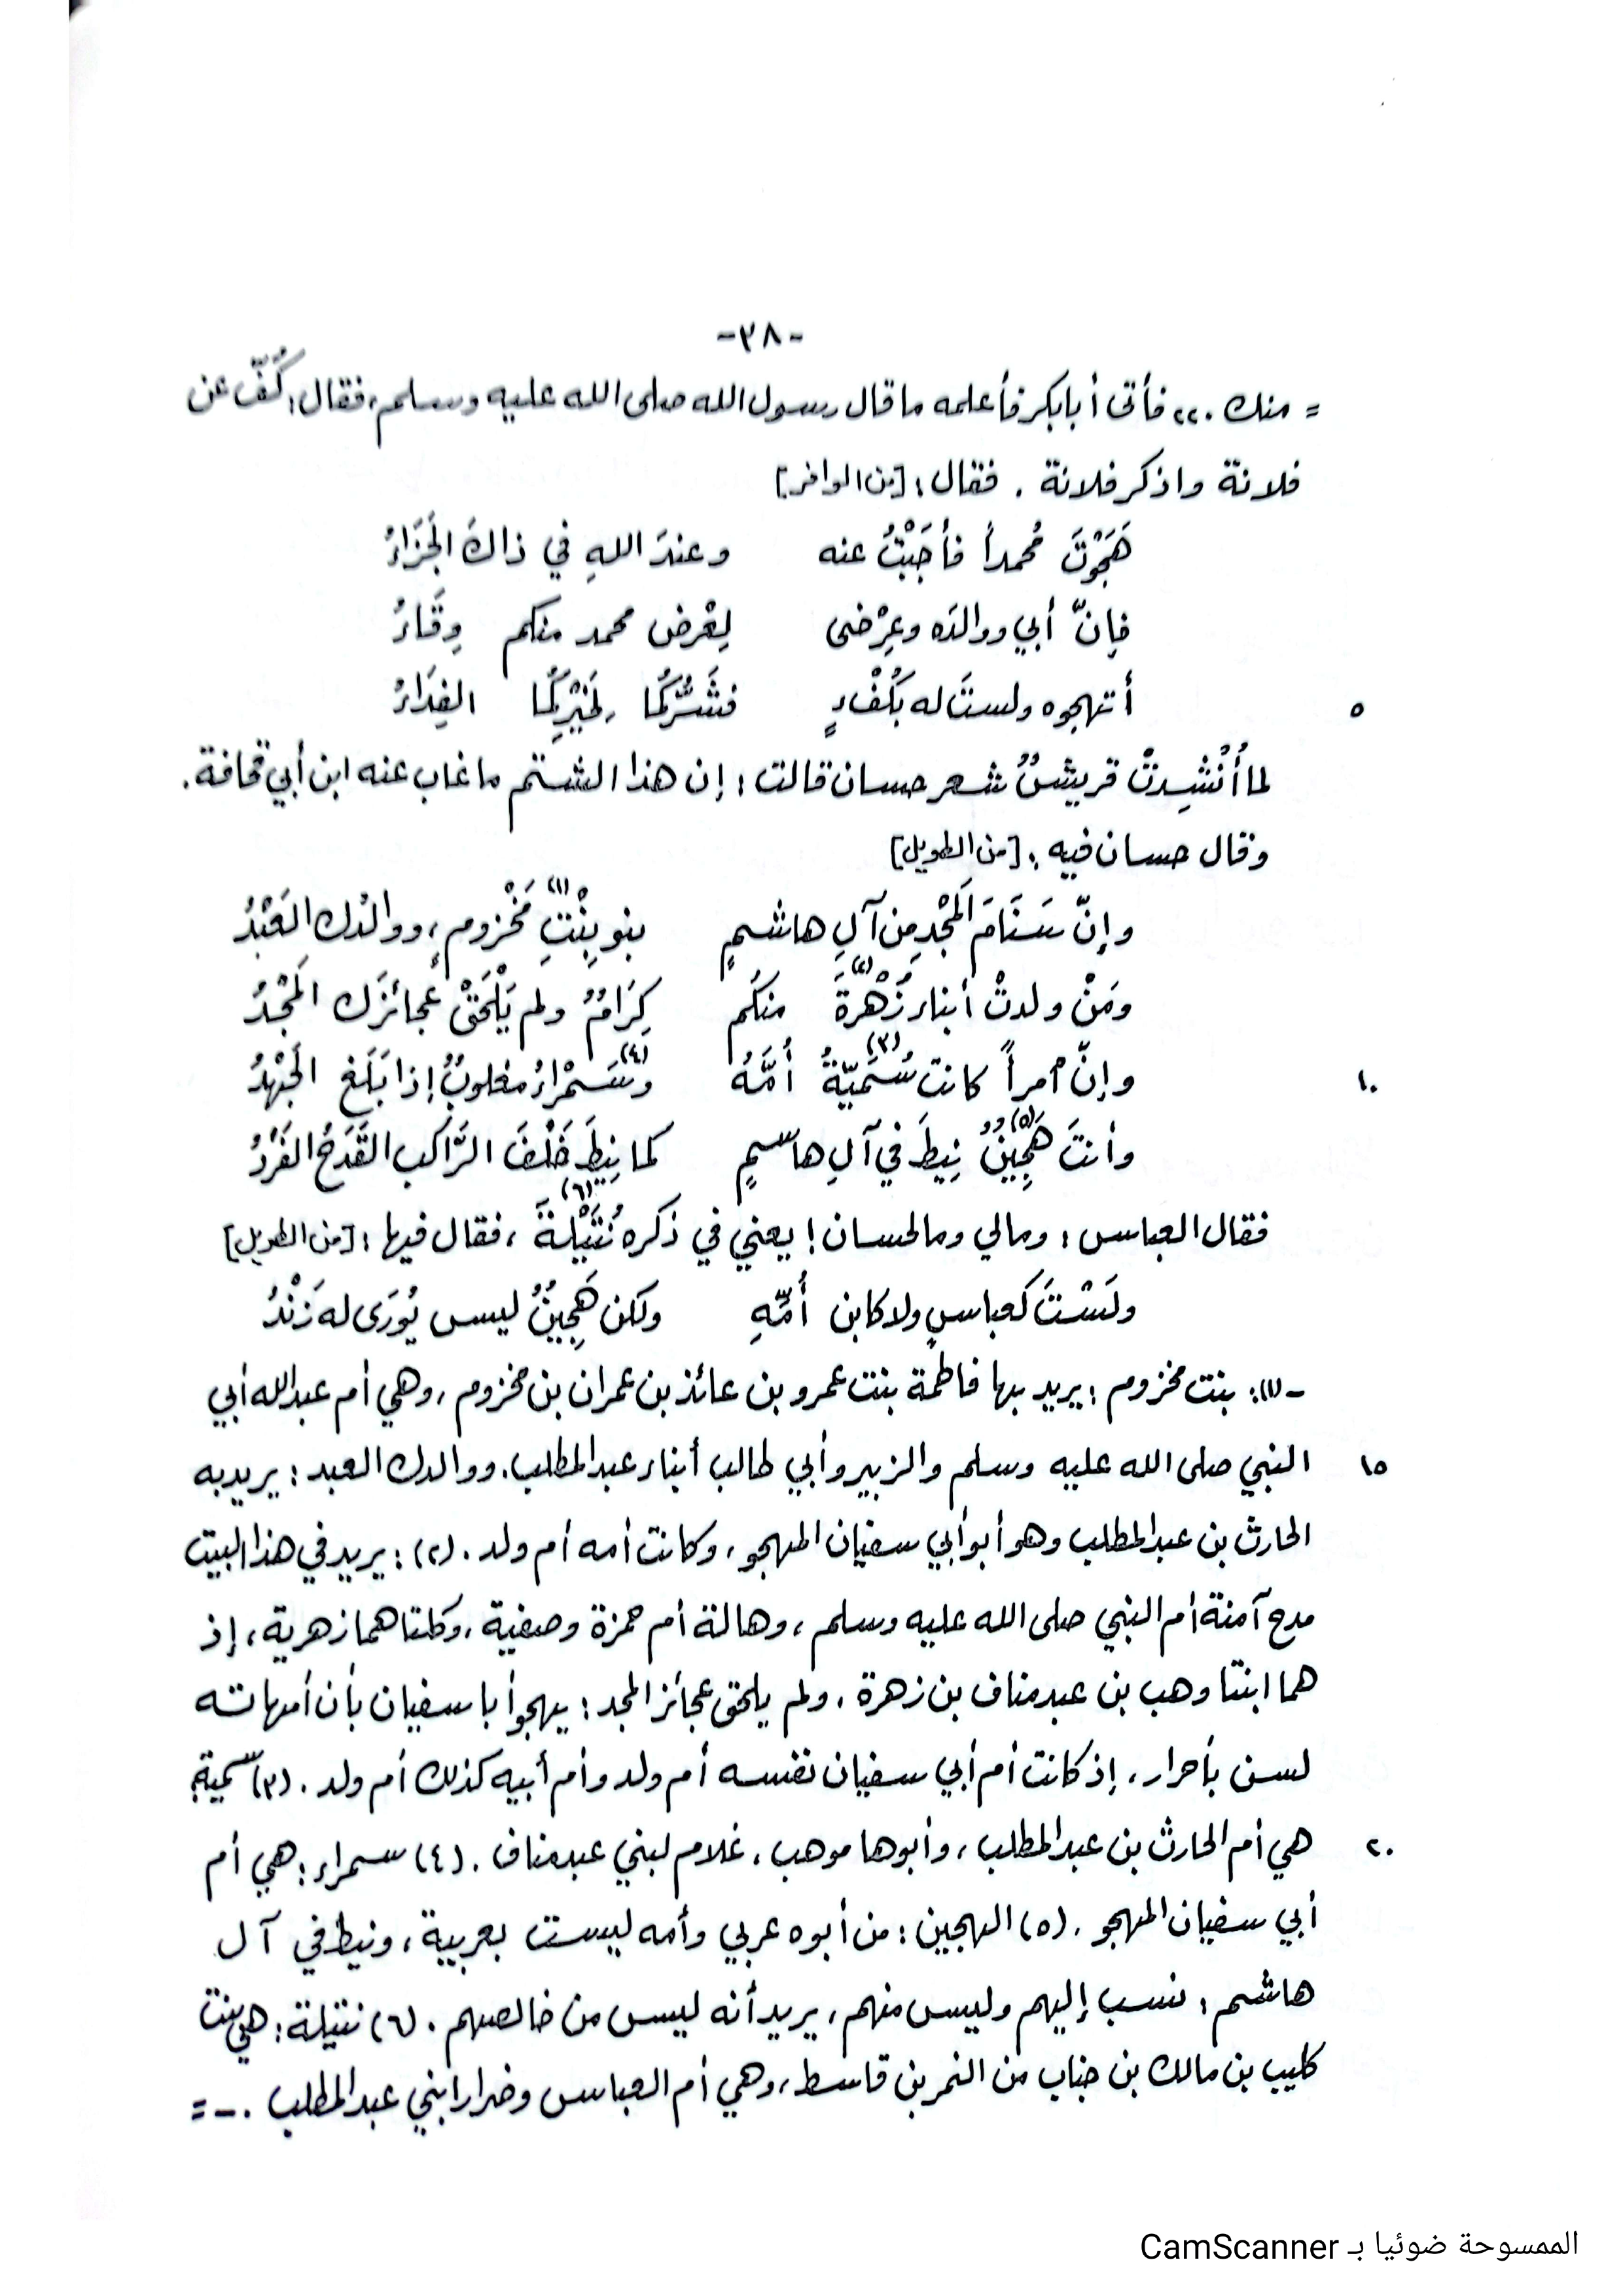 -٣٨-
= منك ٠٢٢ فأتى أبا بكر فأعلمه ما قال رسول الله صلى الله عليه وسلم، فقال: كُفّ عن
فلانة واذكر فلانة . فقال : [من الوافر]
هَجَوْتَ مُحمداً فأجَبْتُ عنه وعندَ اللهِ في ذاكَ الجَزَاءُ
فإنّ أبي ووالدَه وعِرْضى لِعْرض محمد منكم وِقَاءُ
٥ أتهجوه ولستَ له بكُفْاءٍ فشَرُّكُما لخَيْرِكُما الفِدَاءُ
لما أُنْشِدتْ قريشٌ شعر حسان قالت : إن هذا الشتم ما غاب عنه ابن أبي قحافة.
وقال حسان فيه : [من الطويل]
وإنّ سَنَامَ المَجْدِ من آلِ هاشمٍ بنو بِنْتِ (١) مَخْزومٍ، ووالدُك العَبْدُ
ومَنْ ولدتْ أبناء زُهْرةَ (٢) منكم كِرَامٌ ولم يَلْحَقْ عجائزَك المَجْدُ
١٠ وإنّ امرأً كانت سُمَيّةُ (٣) أُمَّهُ وسَمْراءُ (٤) مغلوبٌ إذا بَلَغ الجَهْدُ
وأنتَ هَجِينٌ (٥) نِيطَ في آلِ هاشمٍ كما نِيطَ خَلْفَ الرَّاكب القَدَحُ الفَرْدُ
فقال العباس : ومالي ومالحسان ! يعني في ذكره نُتَيْلةَ (٦) ، فقال فيها : [من الطويل]
ولَسْتَ كعباسٍ ولا كابن أُمِّهِ ولكن هَجِينٌ ليس يُورَى له زَنْدُ
-(١): بنت مخزوم : يريد بها فاطمة بنت عمرو بن عائذ بن عمران بن مخزوم ، وهي أم عبد الله أبي
١٥ النبي صلى الله عليه وسلم والزبير وأبي طالب أبناء عبد المطلب . ووالدك العبد : يريد به
الحارث بن عبد المطلب وهو أبو أبي سفيان المهجو ، وكانت أمه أم ولد . (٢) : يريد في هذا البيت
مدح آمنة أم النبي صلى الله عليه وسلم ، وهالة أم حمزة وصفية ، وكلتا هما زهرية ، إذ
هما ابنتا وهب بن عبد مناف بن زهرة . ولم يلحق عجائز المجد : يهجو أبا سفيان بأن أمهاته
لسن بأحرار ، إذ كانت أم أبي سفيان نفسه أم ولد وأم أبيه كذلك أم ولد . (٣) سمية:
٢٠ هي أم الحارث بن عبد المطلب ، وأبوها موهب ، غلام لبني عبد مناف . (٤) سمراء : هي أم
أبي سفيان المهجو . (٥) الهجين : من أبوه عربي وأمه ليست بعربية ، ونيط في آل
هاشم : نسب إليهم وليس منهم ، يريد أنه ليس من خالصهم . (٦) نتيلة : هي بنت
كليب بن مالك بن جناب من النمر بن قاسط ، وهي أم العباس وضرار ابني عبد المطلب . -=
الممسوحة ضوئيا بـ CamScanner